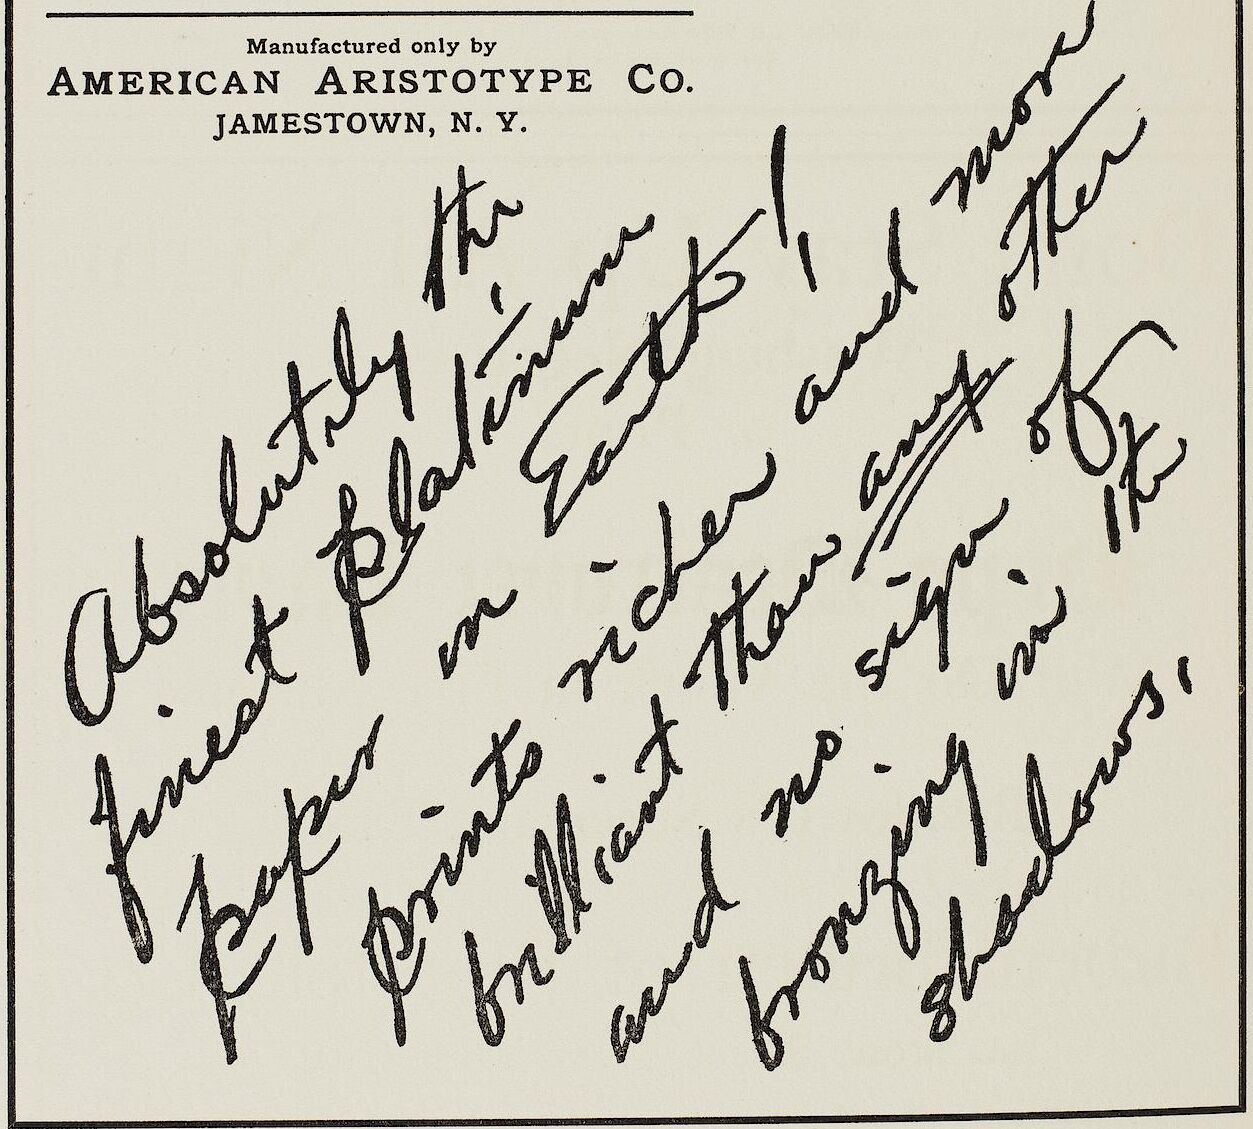 Manufactured only by
AMERICAN ARISTOTYPE CO.
JAMESTOWN, N. Y.
Absolutely the
finest platinum
paper on Earth!
prints richer and more
brilliant than any other
and no sign of
bronzing in the
shadows,